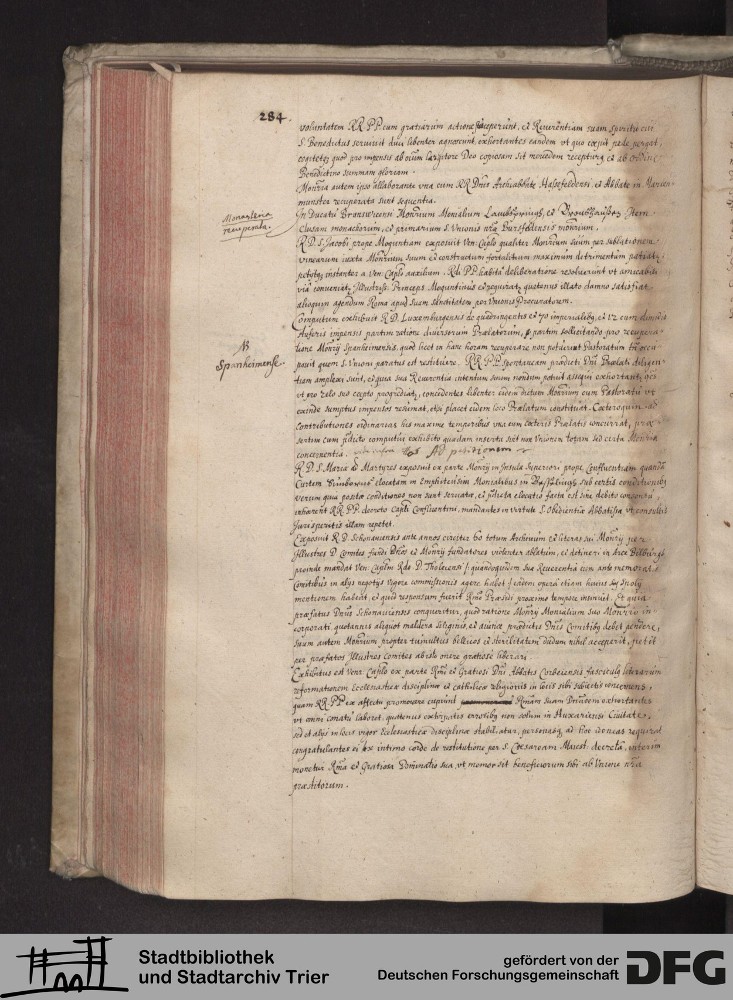 284.
voluntatem RR. PP. cum gratiarum actione susceperunt, et Reverentiam suam spiritu
S. Benedictus servivit diu libenter agnoscunt, exhortantes eandem ut quo cœpit pede pergat,
cogitetq; quod pro impensis ab eius Largitore Deo copiosam sit mercedem recepturq et ab ordine
Benedictino summam gloriam.
Monria autem ipso allaborante una cum RR Dnis Archiabbate Hasefeldensi, et Abbate in Marien
munster recuperata sunt sequentia.
Monasteria
recuperata.
In Ducatu Brunswicensi Monrium Monialium et Broudhausen Item
Clusam monachorum, et primarium S. Unionis nræ Bursfeldensis monrium.
R. D. S. Jacobi prope Moguntiam exposuit Ven. Caplo qualiter Monrium suum per sublationem
vinearum iuxta Monrium suum et constructum fortalitium maximum detrimentum patiatr,
petitq; instanter a Ven. Caplo auxilium. Rdi PP. habita deliberatione resolverunt ut amicabili
via conveniatr Illustriss. Princeps Moguntinus et requiratr quatenus illato damno satisfiat
alioquin agendum Romæ apud suam Sanctitatem per Unionis Procuratorem.
Computum exhibuit R. D. Luxemburgensis de quadringentis et 70 imperialibq et 12 cum dimidio
Auseris impensis partim ratione diversorum Prælatorum, partim sollicitando pro recupera-
tione Monrij Spanheimensis, quod licet in hanc horam recuperare non potuerit Pastoratum tn
NB
Spanheimense
posuit quem S. Unioni paratus est restituere. RR. PP. Spontaneam prædicti Dni Prælati diligen-
tiam amplexi sunt, et quia sua Reverentia intentum suum nondum potuit assequi exhortantr
ut pro zelo suo cœpto progrediatr, concedentes libenter eidem dictum Monrium cum Pastoratu ut
exinde sumptus impensos resumat, etsi placet eidem loco Prælatum constituat. Cœteroquin ad
contributiones ordinarias his maxime temporibus una cum cæteris Prælatis concurrat, præ-
sertim cum in dicto computu exhibito quædam inserta sint non Unionem totam sed certa Monria
concernentia. vide infra Ad petitionem
R. D. S. Mariæ ad Martyres exposuit ex parte Monrij in Insula Superiori prope Confluentiam quandam
Curtem elocatam in Emphiteusim Monialibus in sub certis conditionibq
verum quia positæ conditiones non sunt servatæ, et in dicta elocatio facta est sine debito consensu,
inhærent RR. PP. decreto Capli Confluentini, mandantes in virtute S. Obedientiæ Abbatissæ ut consultis
Jurisperitis illam repetet.
Exposuit R. D. Schonauiensis ante annos circiter 60 totum Archivum et literas sui Monrij per
Illustres D. Comites fundi et Monrij fundatores violenter ablatum, et detineri in Arce Dilburgs
proinde mandat Ven. Caplm Rdo D. Tholeiensi (quandoquidem sua Reverentia cum ante memoratis
Comitibus in alijs negotijs vigore commissionis agere habet) eadem opera etiam huius sui Spolij
mentionem habeat, et quid responsum fuerit Rmo Præsidi proximo tempore insinuet. Et quia
præfatus Dnus Schonauiensis conqueritur, quod ratione Monrij Monialium suo Monrio in-
corporati, quotannis aliquot maldera siliginis et avenæ prædictis Dnis Comitibq debet pendere,
suum autem Monrium propter tumultus bellicos et sterilitatem dudum nihil acceperit, petit
per præfatos Illustres Comites ab isto onere gratiose liberari.
Exhibitus est Venr. Caplo ex parte Rmi et Gratiosi Dni Abbatis Corbeiensis fasciculq literarum
reformationem Ecclesiasticæ disciplinæ et catholicæ religionis in locis sibi subjectis concernens,
quam RR. PP. ex affectu promovere cupiunt Rmam suam Dnaem exhortantes
ut omni conatu laboret, quatenus extirpatis erroribq non solum in Huxariensi Civitate,
sed et alijs in locis vigor Ecclesiasticæ disciplinæ stabiliatur, personasq; ad hoc idoneas requirat
congratulantes ei ex intimo corde de restitutione per S. Cæsaream Maiest. decreta, interim
monetur Rma et Gratiosa Dominatio sua, ut memor sit beneficiorum sibi ab Unione nra
præstitorum.
Stadtbibliothek
und Stadtarchiv Trier
gefördert von der
Deutschen Forschungsgemeinschaft
DFG